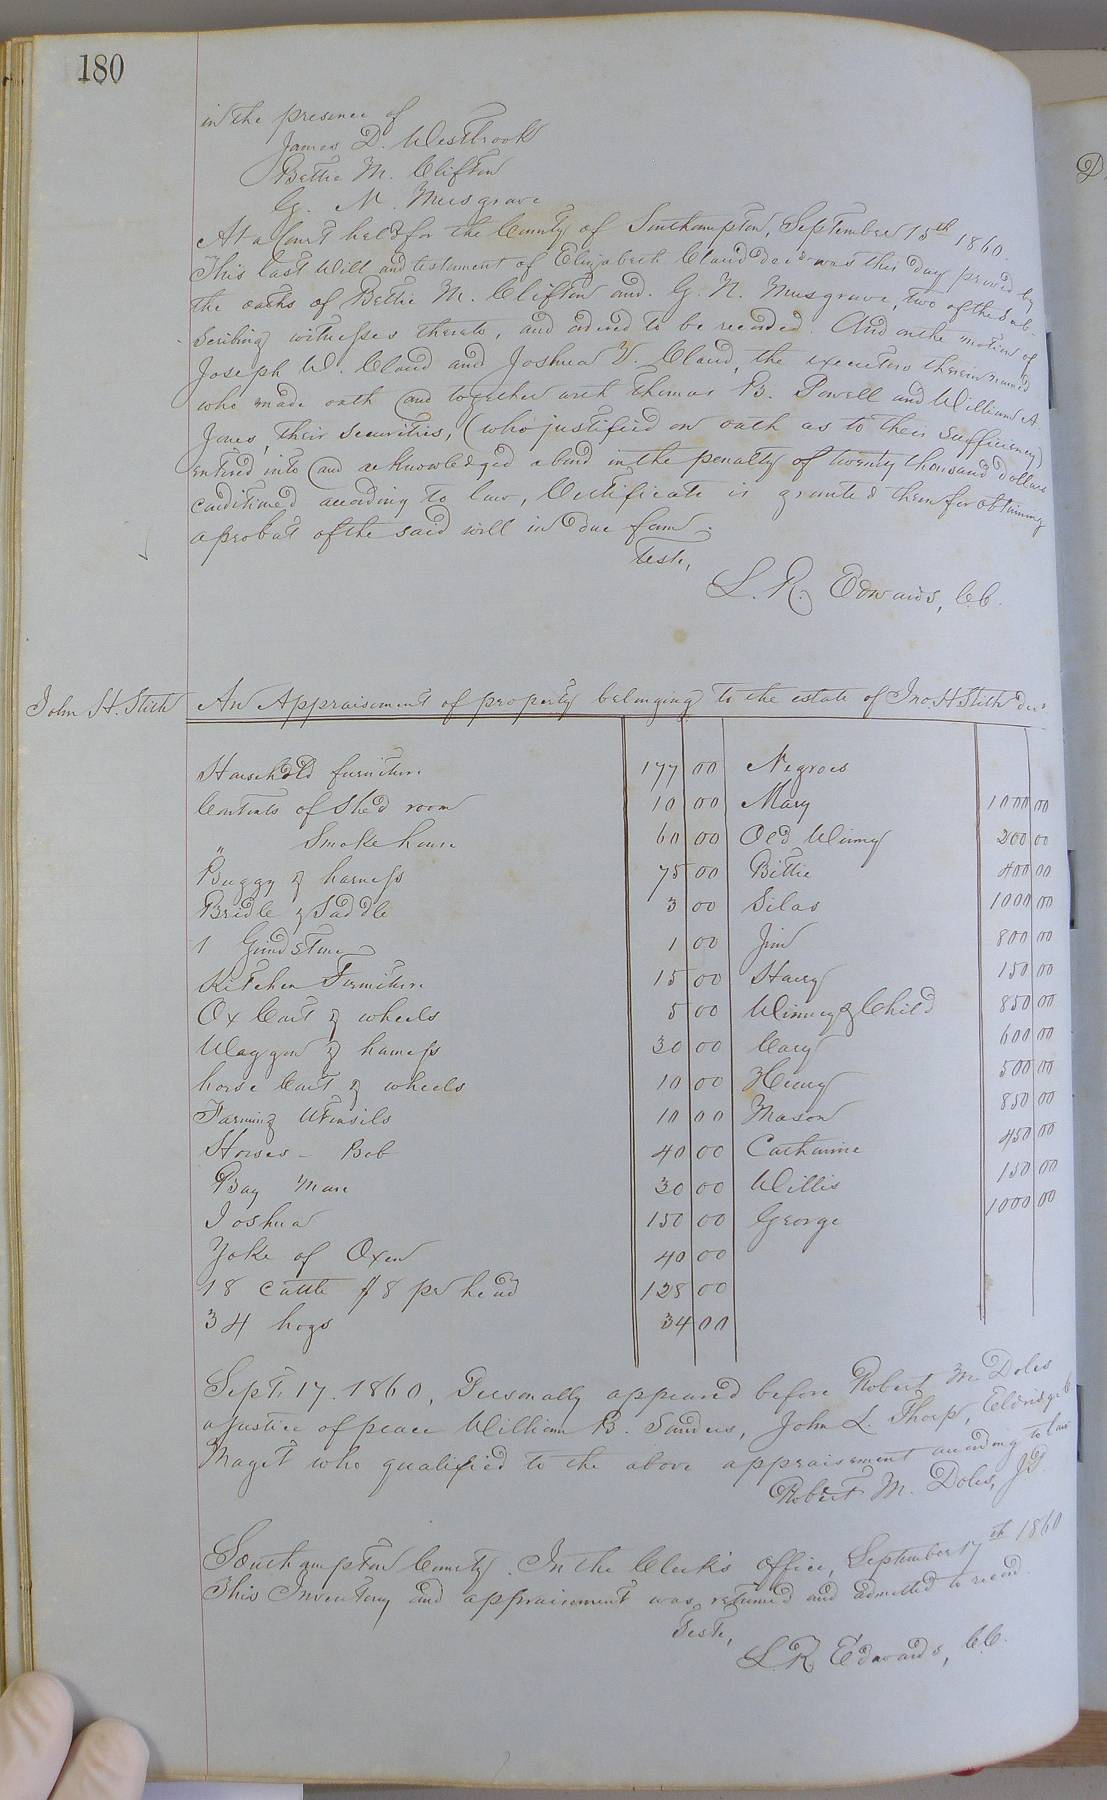 180
in the presence of
James D. Westbrook
Bettie M. Clifton
G. N. Musgrave
At a Court held for the County of Southampton, September 15th 1860.
This last Will and testament of Elizabeth Claud decd was this day proved by
the oaths of Bettie M. Clifton and G. N. Musgrave, two of the sub-
scribing witnesses thereto, and ordered to be recorded. And on the motion of
Joseph W. Claud and Joshua Claud, the executors therein named
who made oath and together with Thomas B. Powell and William A.
Jones, their securities, (who justified on oath as to their sufficiency)
entered into and acknowledged a bond in the penalty of twenty thousand dollars
conditioned according to law, Certificate is granted them for obtaining
a probat of the said will in due form.
Teste,
L. R. Edwards, C.C.
John H. Stith
An Appraisement of property belonging to the estate of Jno. H. Stith decd
Household furniture 177 00 Negroes
Contents of Shed room 10 00 Mary 1000 00
" Smoke house 60 00 Old Winny 200 00
Buggy & harness 75 00 Bittie 400 00
Bridle & Saddle 3 00 Silas 1000 00
1 Grindstone 1 00 Jim 800 00
Kitchen Furniture 15 00 Harry 150 00
Ox Cart & wheels 5 00 Winney & Child 850 00
Waggon & harness 30 00 Cary 600 00
horse Cart & wheels 10 00 Henry 500 00
Farming Utensils 10 00 Mason 850 00
Horses - Bob 40 00 Catharine 450 00
Bay Mare 30 00 Willis 150 00
Joshua 150 00 George 1000 00
Yoke of Oxen 40 00
18 cattle $8 pr head 128 00
34 hogs 34 00
Sept. 17. 1860, Personally appeared before Robert M. Doles
a justice of peace William B. Sanders, John L. Thorp, Eldridge
Maget who qualified to the above appraisement according to law
Robert M. Doles, JP
Southampton County. In the Clerk's office, September 17th 1860
This Inventory and appraisement was returned and admitted to record.
Teste,
L R Edwards, C.C.